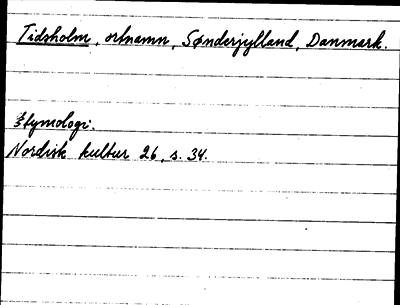 Tidsholm, ortnamn, Sønderjylland, Danmark.
Etymologi.
Nordisk kultur 26, s. 34.